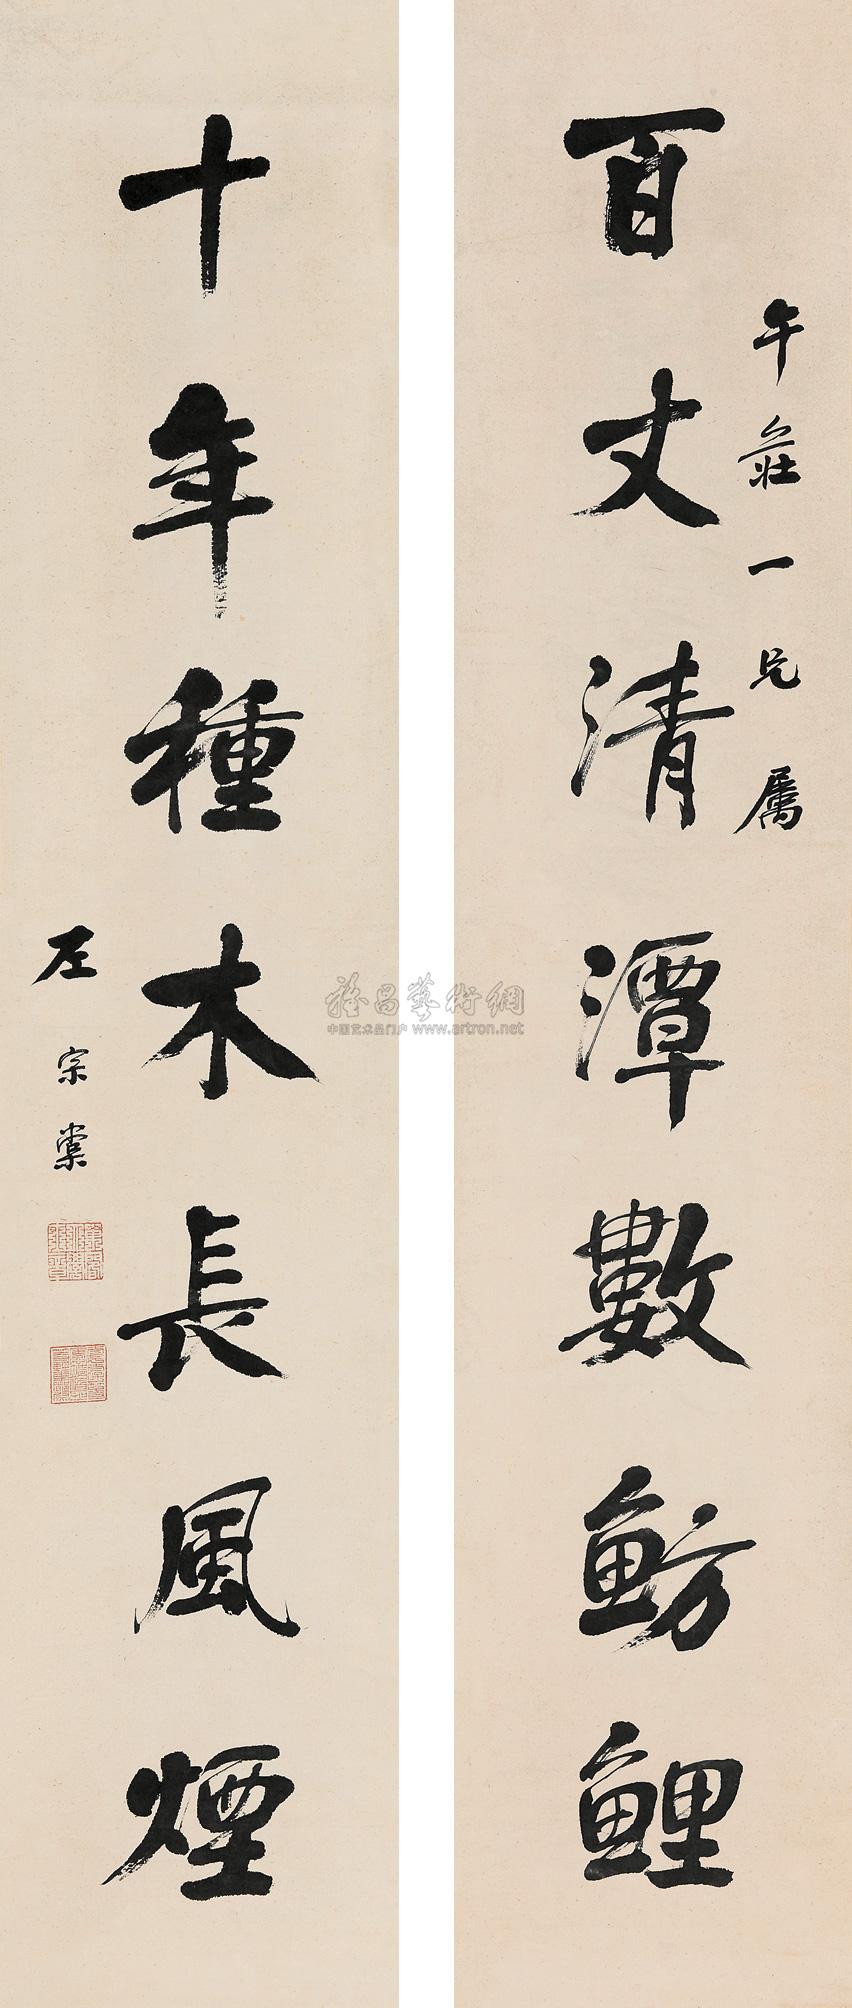 百丈清潭數魴鯉
午莊一兄屬
十年種木長風煙
左宗棠
雅昌藝術網
中国艺术品门户 www.artron.net